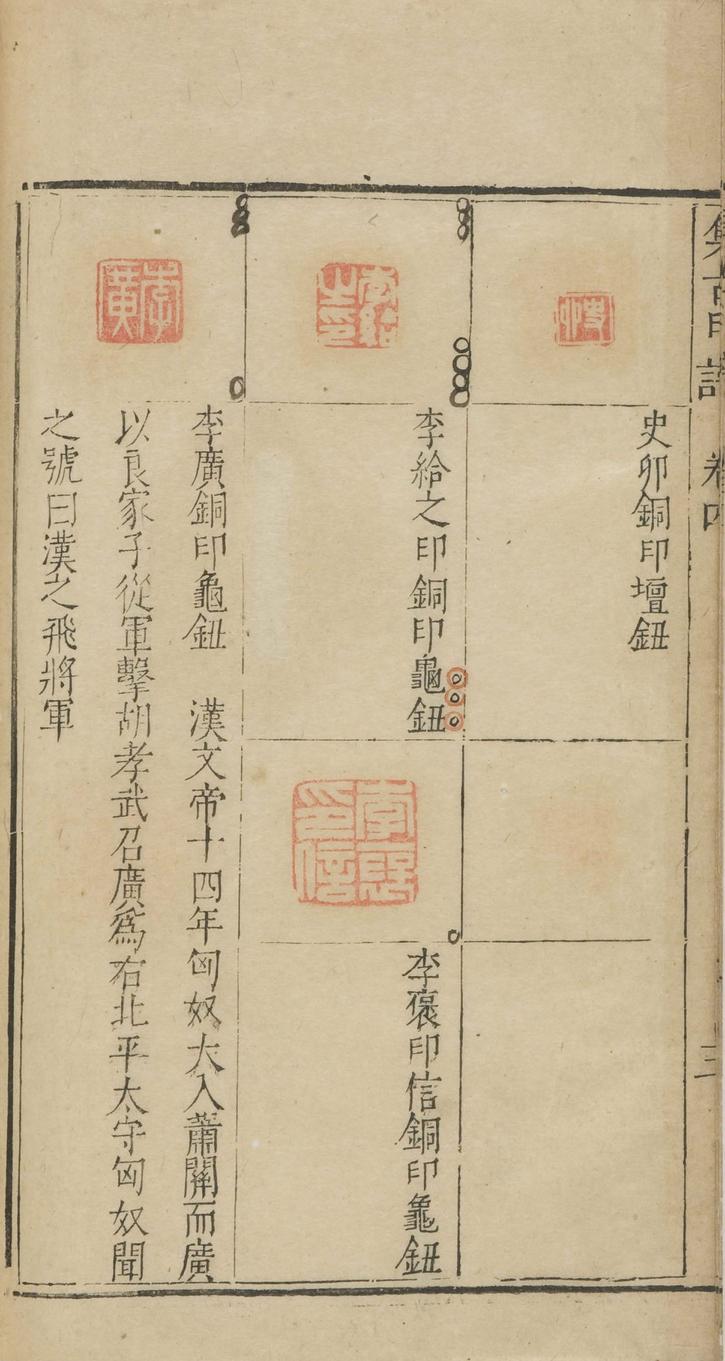 集古印譜 卷四
三
史卯
史卯銅印壇鈕
李給之印
李給之印銅印龜鈕
李褒印信
李褒印信銅印龜鈕
李廣
李廣銅印龜鈕 漢文帝十四年匈奴大入蕭關而廣
以良家子從軍擊胡孝武召廣為右北平太守匈奴聞
之號曰漢之飛將軍